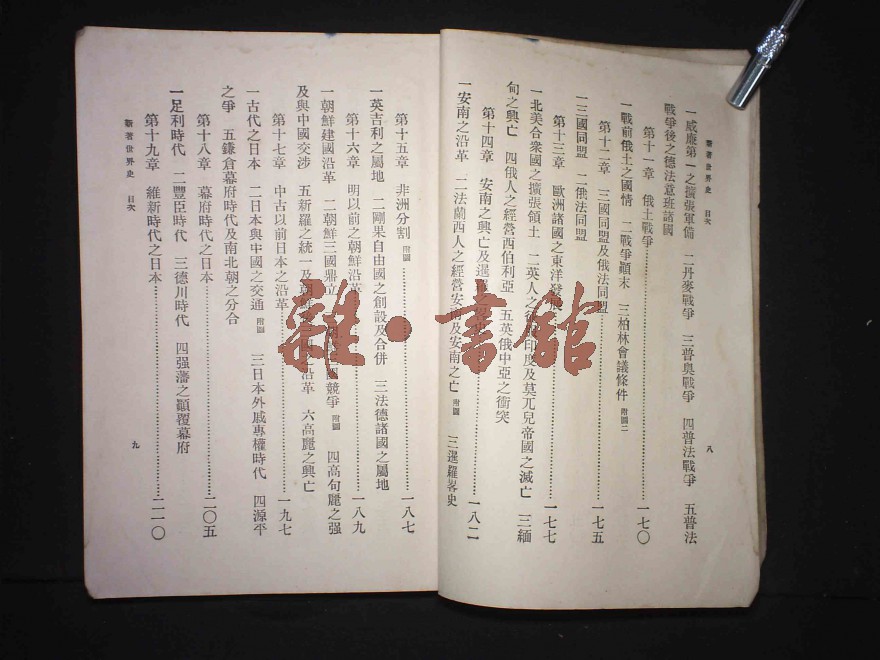 新著世界史 目次 八
一威廉第一之擴張軍備 二丹麥戰爭 三普奧戰爭 四普法戰爭 五普法
戰爭後之德法意班諸國
第十一章 俄土戰爭……一七〇
一戰前俄土之國情 二戰爭顚末 三柏林會議條件 附圖二
第十二章 三國同盟及俄法同盟……一七五
一三國同盟 二俄法同盟
第十三章 歐洲諸國之東洋發……一七七
一北美合衆國之擴張領土 二英人之 印度及莫兀兒帝國之滅亡 三緬
甸之興亡 四俄人之經營西伯利亞 五英俄中亞之衝突
第十四章 安南之興亡及暹……一八二
一安南之沿革 二法蘭西人之經營安南及安南之亡 附圖 三暹羅畧史
第十五章 非洲分割 附圖……一八七
一英吉利之屬地 二剛果自由國之創設及合併 三法德諸國之屬地
第十六章 明以前之朝鮮沿革……一八九
一朝鮮建國沿革 二朝鮮三國鼎立 競爭 附圖 四高句麗之强
及與中國交涉 五新羅之統一及 之沿革 六高麗之興亡
第十七章 中古以前日本之沿革……一九七
一古代之日本 二日本與中國之交通 附圖 三日本外戚專權時代 四源平
之爭 五鎌倉幕府時代及南北朝之分合
第十八章 幕府時代之日本……二〇五
一足利時代 二豐臣時代 三德川時代 四强藩之顚覆幕府
第十九章 維新時代之日本……二一〇
新著世界史 目次 九
雜·書館